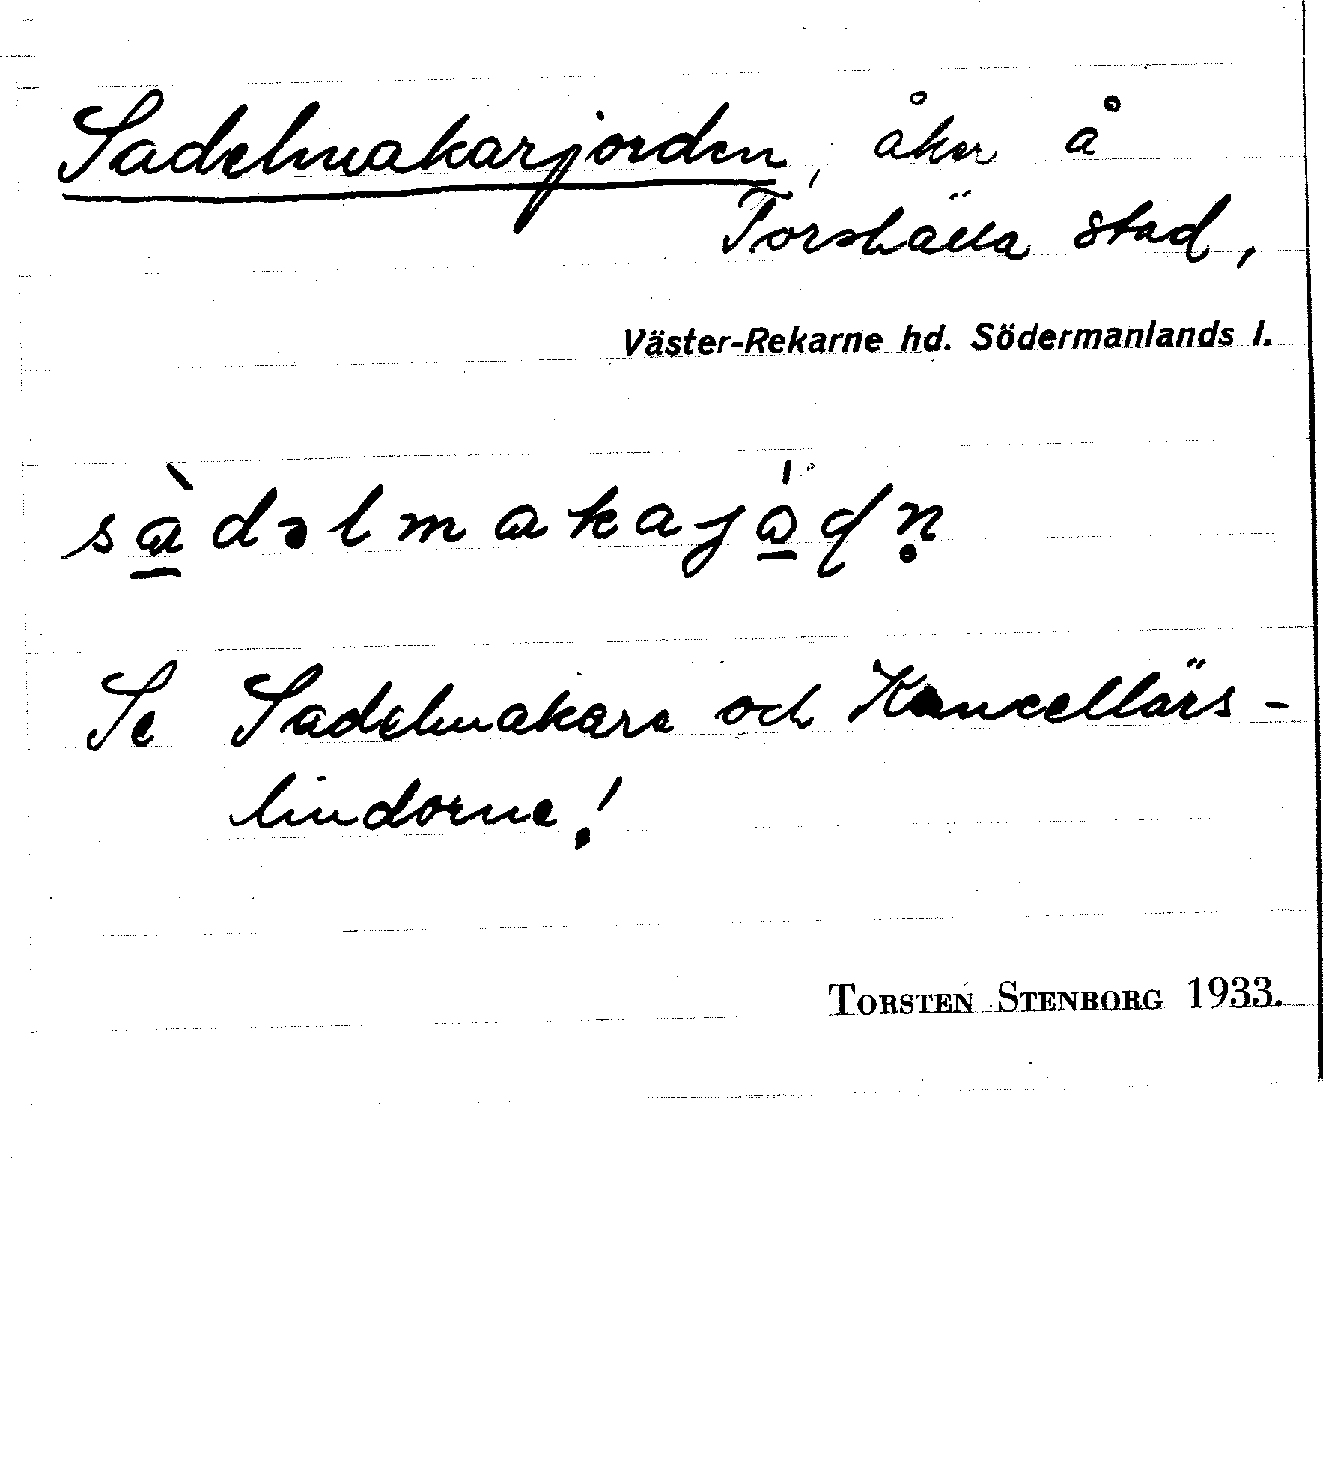 Sadelmakarjorden, åker å
Torshälla stad,
Väster-Rekarne hd. Södermanlands l.
sà̱dəlmakajǻ̱ɖṇ
Se Sadelmakare och Kancellärs-
lindorne!
TORSTEN STENBORG 1933.